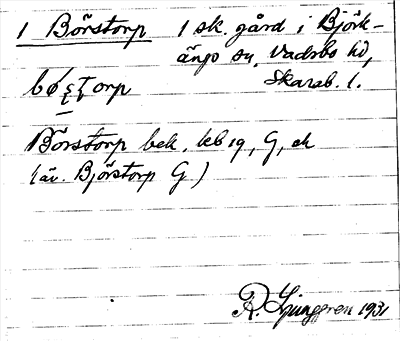 1 Börstorp 1 sk. gård i Björk-
ängs sn, Vadsbo hd,
Skarab. l.
Börstorp bek. leb 19, G, ek
(äv. Björstorp G)
R. Ljunggren 1931